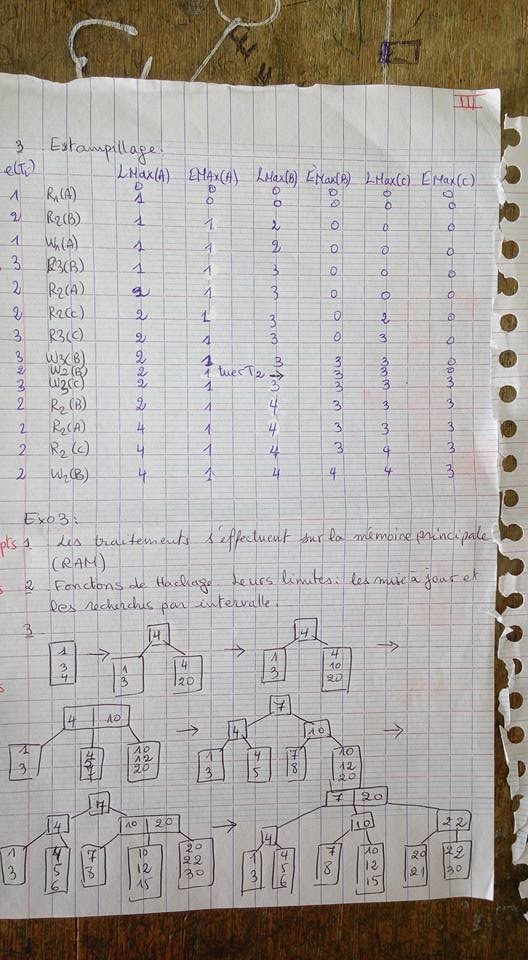 III
3 Estampillage.
e(Ti) LMax(A) EMAx(A) LMax(B) EMax(B) LMax(C) EMax(C)
0 0 0 0 0 0
1 R1(A) 1 0 0 0 0 0
2 R2(B) 1 1 2 0 0 0
1 W1(A) 1 1 2 0 0 0
3 R3(B) 1 1 3 0 0 0
2 R2(A) 2 1 3 0 0 0
2 R2(C) 2 1 3 0 2 0
3 R3(C) 2 1 3 0 3 0
3 W3(B) 2 1 3 3 3 0
2 W2(B) 2 1 tuer T2 → 3 3 0
3 W3(C) 2 1 3 3 3 3
2 R2(B) 2 1 4 3 3 3
2 R2(A) 4 1 4 3 3 3
2 R2(C) 4 1 4 3 4 3
2 W2(B) 4 1 4 4 4 3
Exo3:
pts 1 Les traitements s'effectuent sur la mémoire principale
(RAM)
2 Fonctions de Hachage leurs limites: les mise à jour et
les recherches par intervalle.
3
4 4
1 3 4 → 1 3 4 20 → 1 3 4 10 20 →
7
4 10 4 10
1 3 4 5 7 10 12 20 → 1 3 4 5 7 8 10 12 20 →
7 7 20
4 10 20 4 10 22
1 3 4 5 6 7 8 10 12 15 20 22 30 → 1 3 4 5 6 7 8 10 12 15 20 21 22 30